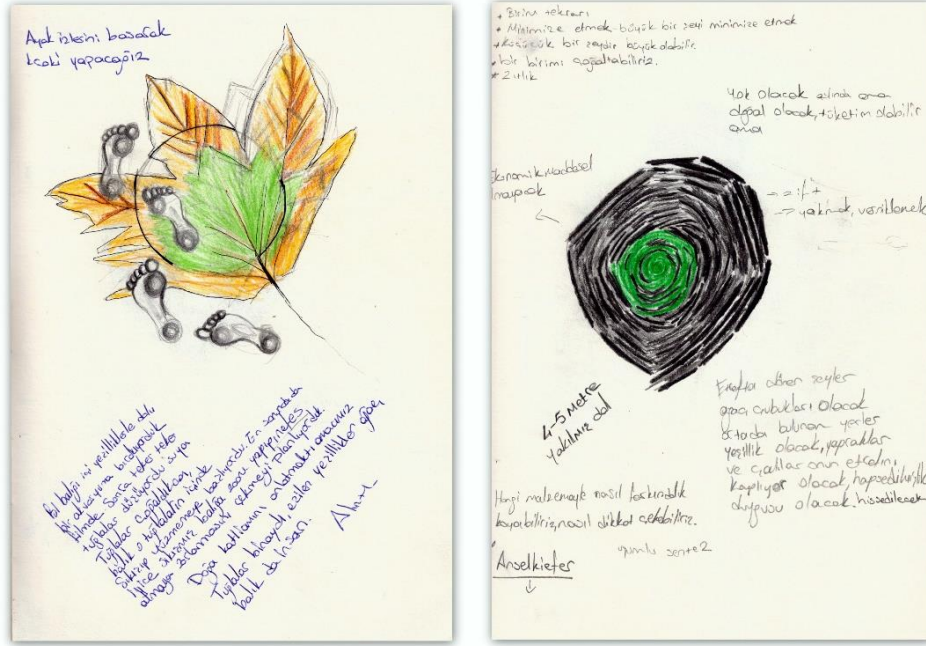 Ayak izlerini basarak
bir balığı içi yeşilliklerle dolu
bir akvaryuma bırakıyorduk
filmde sonra teker teker
tuğlalar diziliyordu suya
Tuğlalar çoğaldıkça,
balık o tuğlaların içinde
sıkışıp yüzmemeye başlıyordu. En sonunda da
iyice sıkışmış balığa sonu yapıp, nefes
almaya zorlanmasını çekmeyi Planlıyorduk.
Doğa katliamını anlatmaktı amacımız
Tuğlalar binaydı, ezilen yeşillikler ağaç,
balık da insan.
* Birim tekrarı
* Minimize etmek büyük bir şeyi minimize etmek
* küçücük bir şeydir büyük olabilir.
* bir birimi çoğaltabiliriz.
* Zıtlık
Yok olacak aslında ama
doğal olacak, tüketim olabilir
ama
Ekonomik, maddesel
→ yakmak,
4-5 Metre
yakılmış dal
Etrafta döner şeyler
ağaç çubukları olacak
ortada bulunan yerler
yeşillik olacak, yapraklar
ve çiçekler onun etrafını
kaplıyor olacak, hapsedilmişlik
duygusu olacak. hissedilecek
Hangi malzemeyle nasıl farkındalık
koyabiliriz, nasıl dikkat çekebiliriz.
Anselkiefer